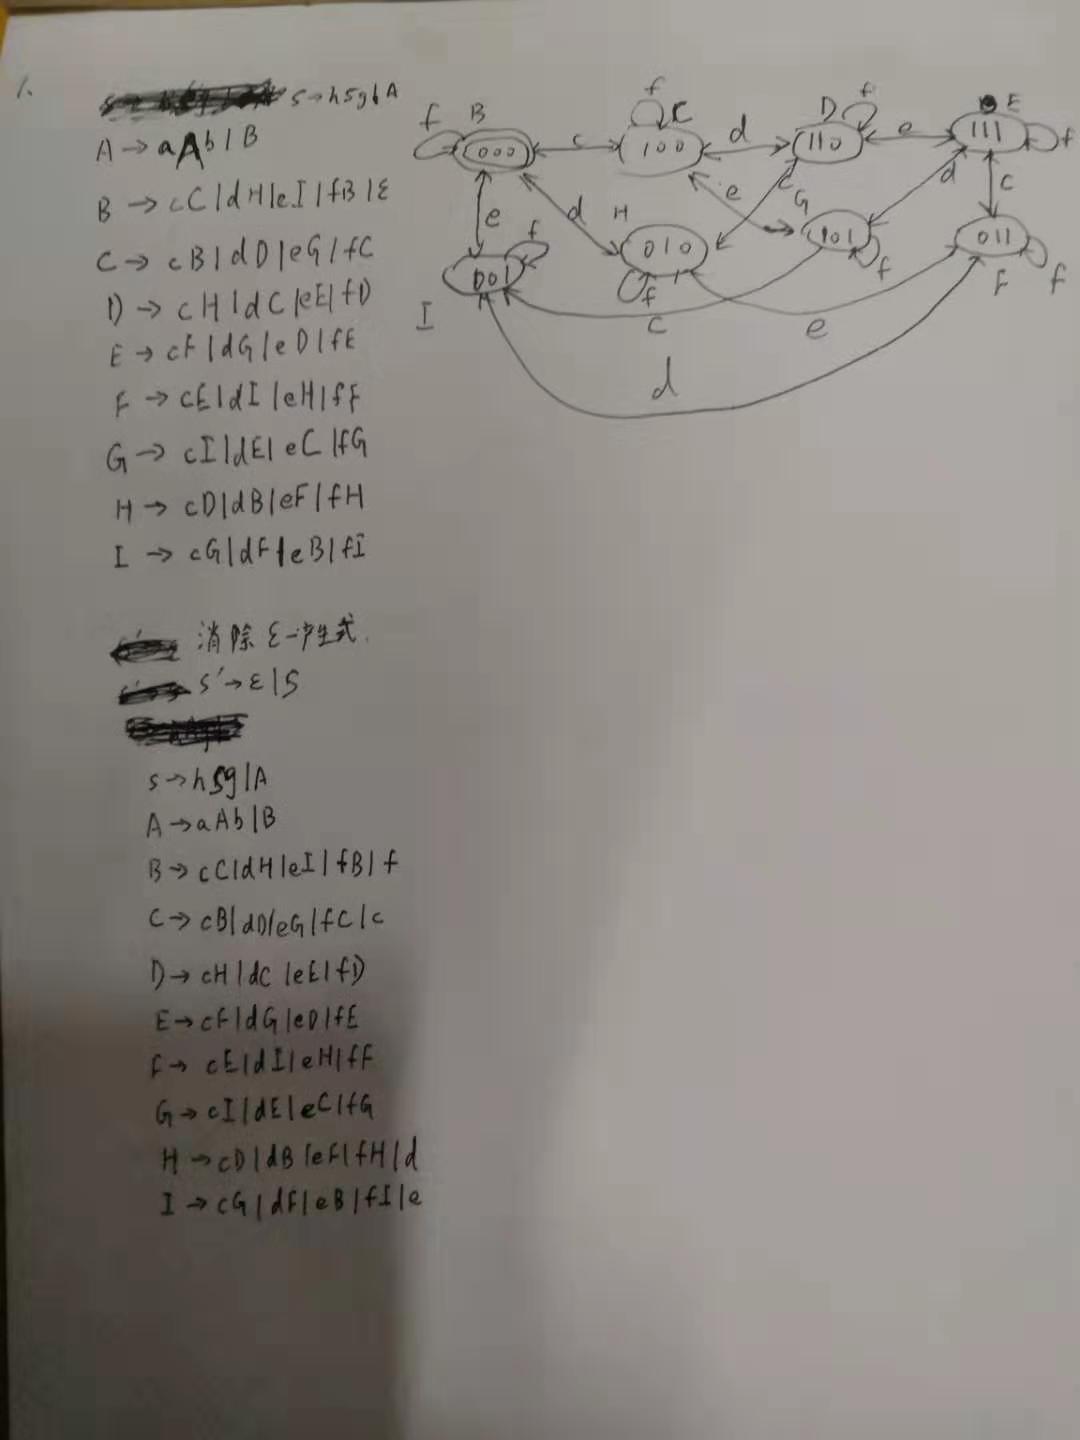 1.
S→hSg|A
A→aAb|B
B→cC|dH|eI|fB|ε
C→cB|dD|eG|fC
D→cH|dC|eE|fD
E→cF|dG|eD|fE
F→cE|dI|eH|fF
G→cI|dE|eC|fG
H→cD|dB|eF|fH
I→cG|dF|eB|fI
f B 000 c f C 100 d D f 110 e E 111 f
e d H 010 f e c G 101 f d c 011 F f
I 001 f c e
d
消除ε-产生式.
S'→ε|S
S→hSg|A
A→aAb|B
B→cC|dH|eI|fB|f
C→cB|dD|eG|fC|c
D→cH|dC|eE|fD
E→cF|dG|eD|fE
F→cE|dI|eH|fF
G→cI|dE|eC|fG
H→cD|dB|eF|fH|d
I→cG|dF|eB|fI|e